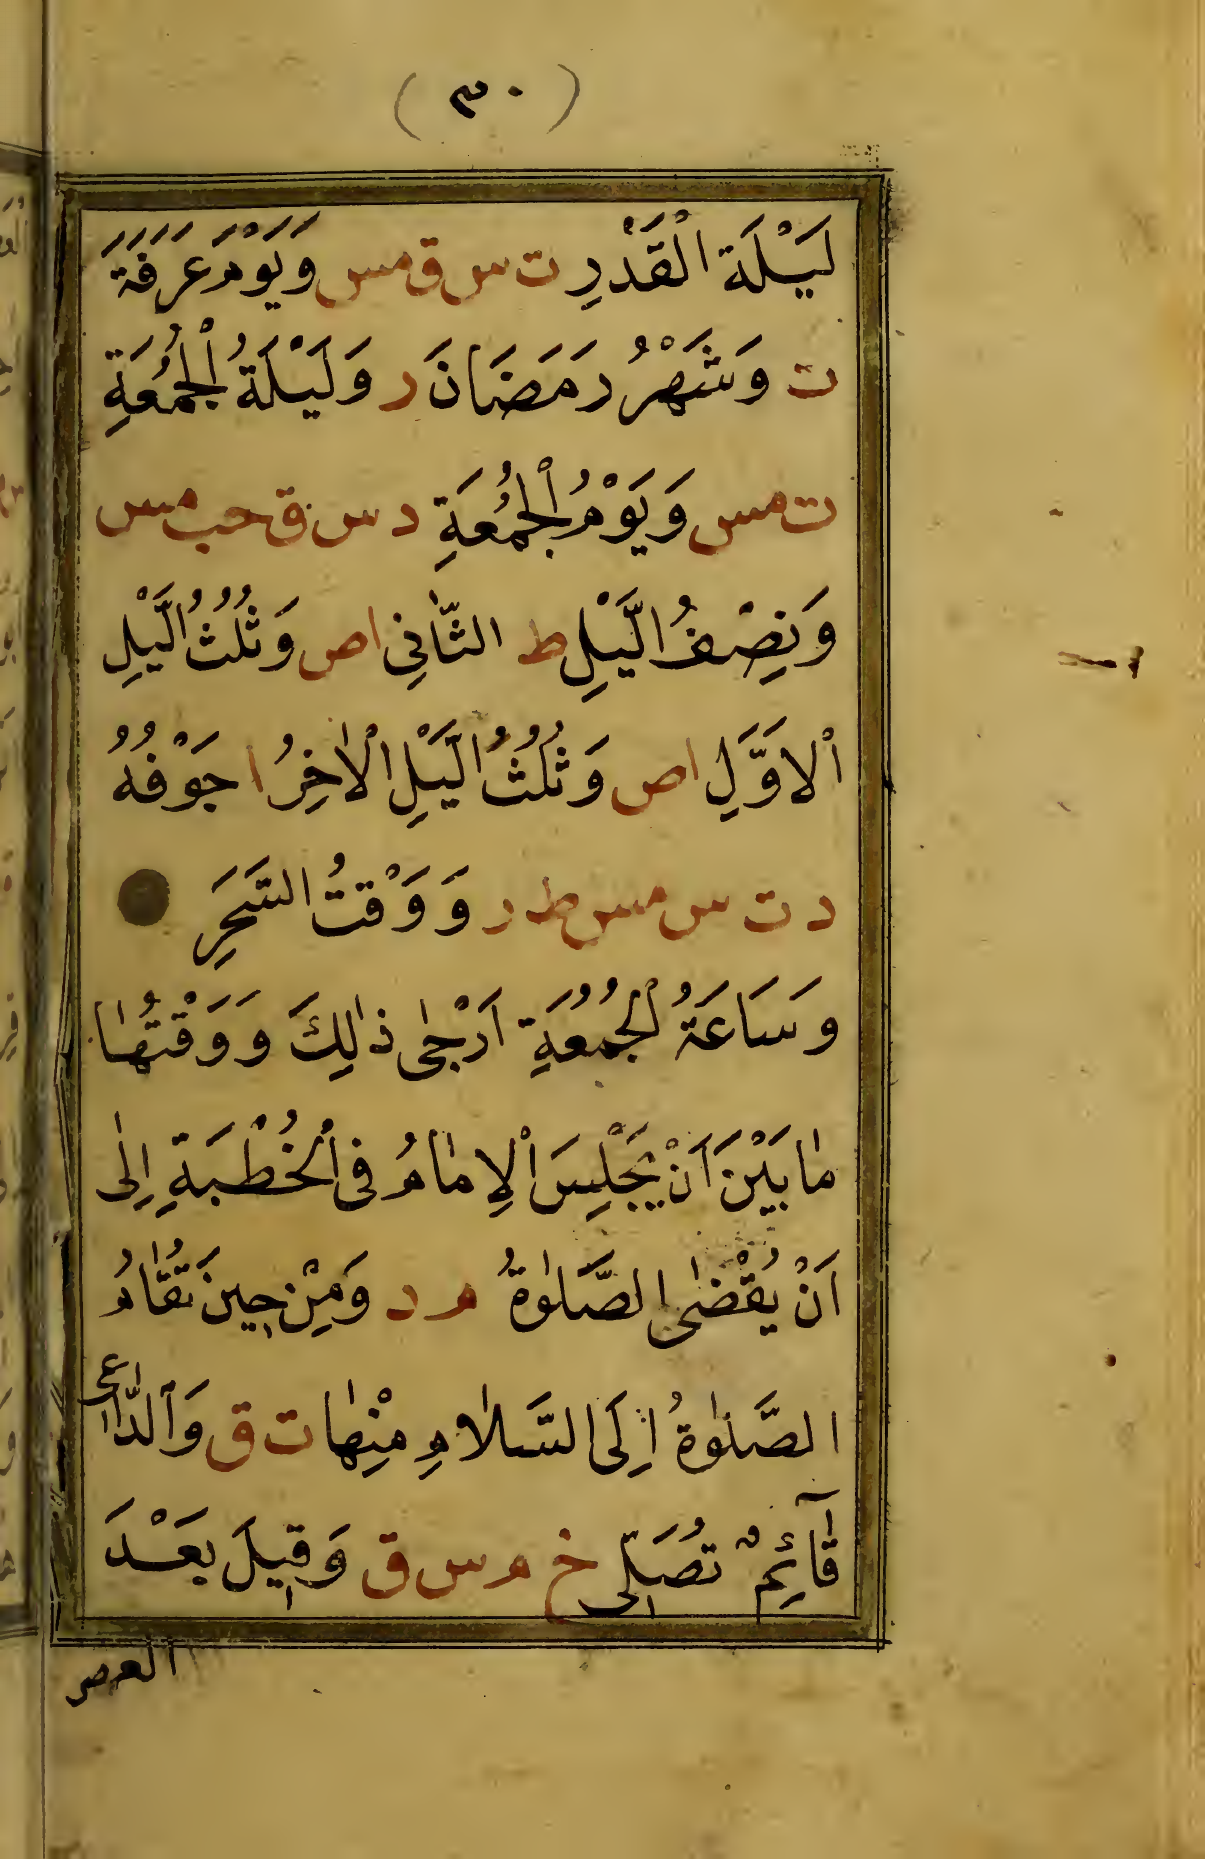 ( ٣٠ )
لَيْلَةَ الْقَدْرِ ت س ق مس وَيَوْمَ عَرَفَةَ
ت وَشَهْرُ رَمَضَانَ ر وَلَيْلَةُ الْجُمُعَةِ
ت مس وَيَوْمُ الْجُمُعَةِ د س ق حب مس
وَنِصْفُ الَّيْلِ ط الثَّانِي ا ص وَثُلُثُ الَّيْلِ
الْاَوَّلِ ا ص وَثُلُثُ الَّيْلِ الْاٰخِرُ ا جَوْفُهُ
د ت س مس ط ر وَوَقْتُ السَّحَرِ
وَسَاعَةُ الْجُمُعَةِ اَرْجٰى ذٰلِكَ وَوَقْتُهٰا
مٰا بَيْنَ اَنْ يَجْلِسَ الْاِمٰامُ فِى الْخُطْبَةِ اِلٰى
اَنْ يُقْضٰى الصَّلٰوةُ م د وَمِنْ حِينَ تُقَامُ
الصَّلٰوةُ اِلَى السَّلٰامِ مِنْهٰا ت ق وَالدَّاعِى
قٰٓائِمٌ تُصَلِّى خ م س ق وَقِيلَ بَعْدَ
العصر